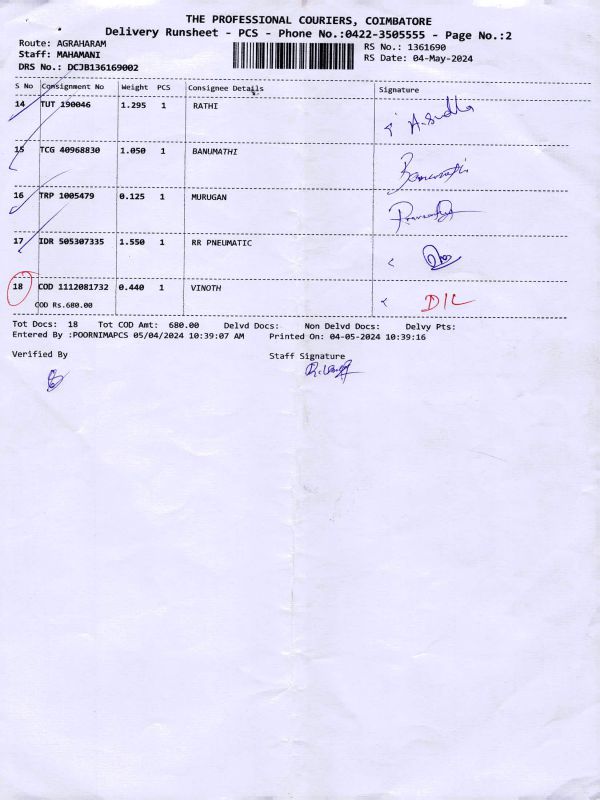 THE PROFESSIONAL COURIERS, COIMBATORE
Delivery Runsheet - PCS - Phone No.:0422-3505555 - Page No.:2
Route: AGRAHARAM
RS No.: 1361690
Staff: MAHAMANI
RS Date: 04-May-2024
DRS No.: DCJB136169002
S No Consignment No Weight PCS Consignee Details Signature
14 TUT 190046 1.295 1 RATHI A.Sudha
15 TCG 40968830 1.050 1 BANUMATHI Banumathi
16 TRP 1005479 0.125 1 MURUGAN
17 IDR 505307335 1.550 1 RR PNEUMATIC
18 COD 1112081732 0.440 1 VINOTH D/L
COD Rs.680.00
Tot Docs: 18 Tot COD Amt: 680.00 Delvd Docs: Non Delvd Docs: Delvy Pts:
Entered By :POORNIMAPCS 05/04/2024 10:39:07 AM Printed On: 04-05-2024 10:39:16
Verified By Staff Signature